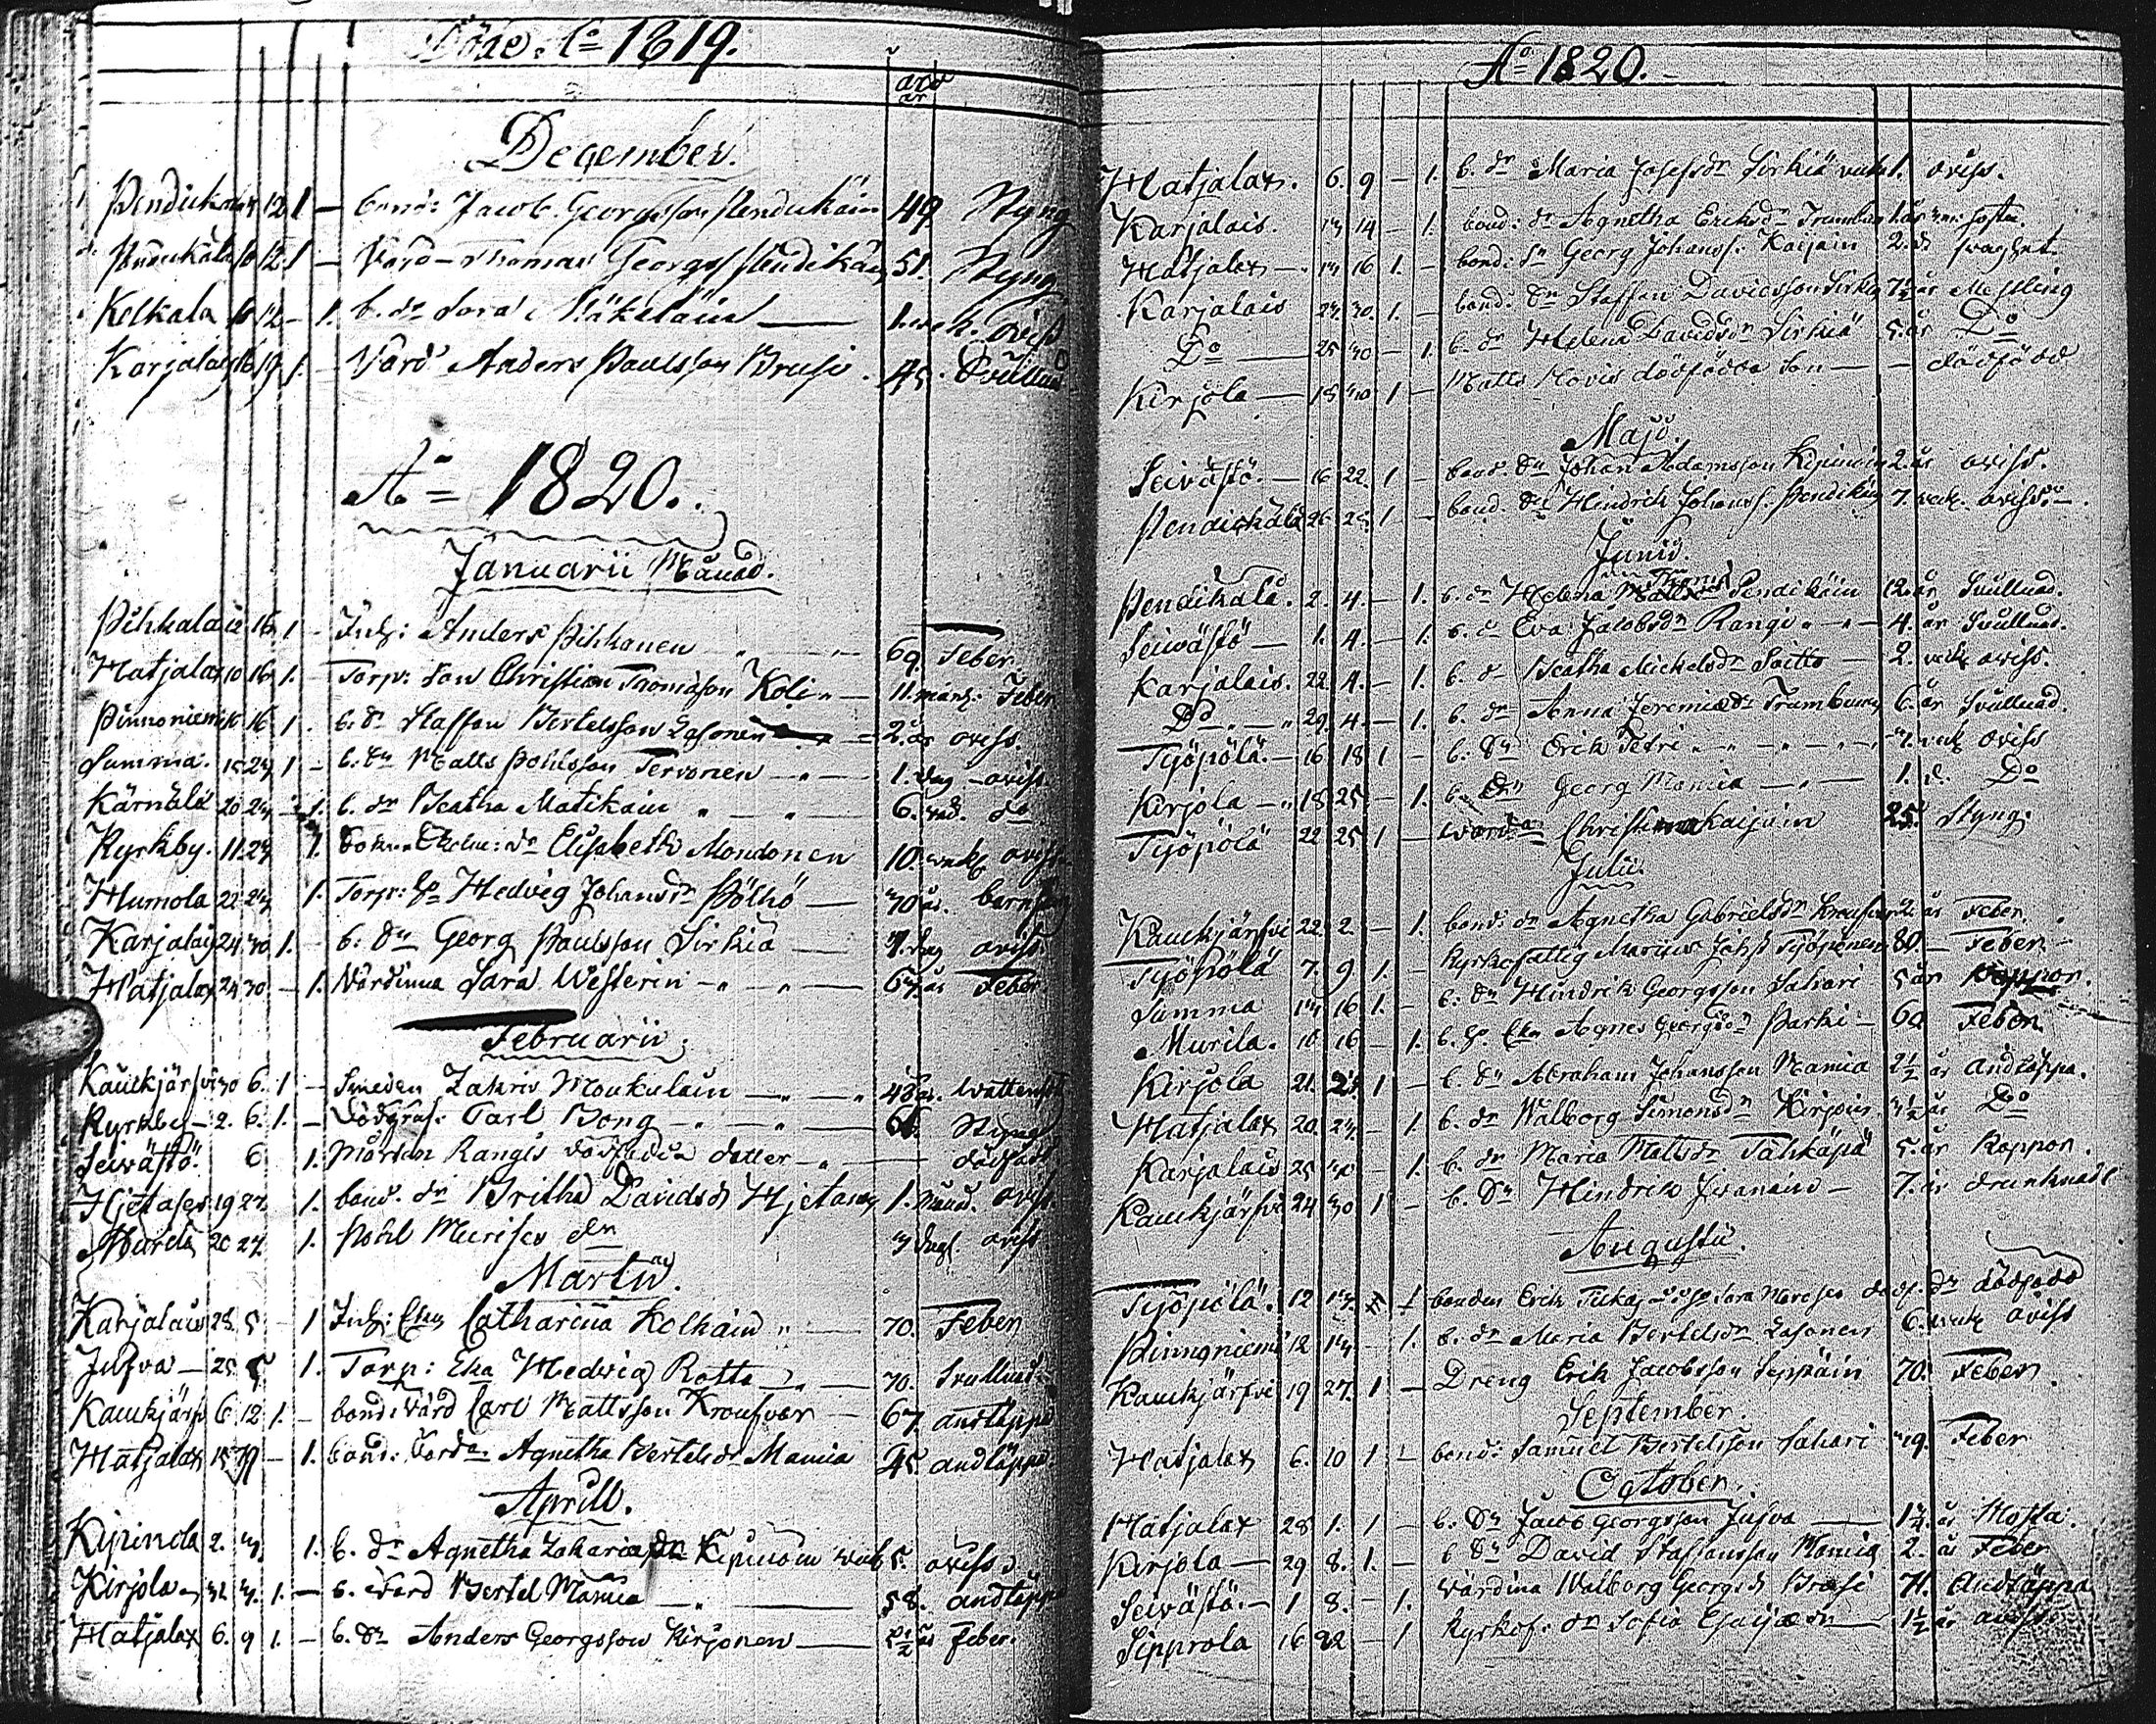 Döde. Ao 1819.
år
December.
Pendikala 8 12 1 — bond: Jacob Georgsson Pendikäin 49 Styng
Pendikala 10 12 1 — Värd Thomas Georgss Pendikäin 51. Styng
Kolkala 10 12 — 1. b. dr Sara Mäkeläin — 1. vek. oviss
Karjalais 16 19 1. — Värd Anders Paulsson Bruse. 45. Svullnad
Ao 1820.
Januarii Månad.
Pihkala 12 16 1 — Inh: Anders Pihkanen 69. Feber
Hatjalax 10 16 1. — Torp: son Christian Thomasson Koli — 11. mån: Feber
Pinnoniemi 16 16 1. b. Sn Staffan Bertelsson Lasonen — 2. år oviss.
Summa. 15 23 1 — b. Sn Matts Pohlsson Tervonen — 1. dag oviss.
Kärnälä 20 23 — 1. b. dr Beatha Matikain 6. vek. do
Kyrkby. 11. 23 1. Elisabeth Mondonen 10. vek oviss
Humola 22 23 1. Torp: Hedvig Johansdr Pölhö — 30 år. barnsäng
Karjalais 24 30 1. — b. Sn Georg Paulsson Sirkiä — 1. dag oviss
Hatjalax 24 30 — 1. Värdinna Sara Westerin — 63. år Feber
Februarii.
Kaukjärfvi 30 6. 1 — Smeden Zakris Moukulain — 48 år. Wattensot
Kyrkby — 2. 6. 1. — Dödgraf. Carl Bong — Styng
Seivästö. 6 1. Mårten Rangis dödfödda dotter — dödfödd
Hjetases 19 27. 1. bond. dr Britha Davidsd Hjetanen 1. månd. oviss.
Murila 20 27. 1. Pohl Murises dr 3 dagr. oviss
Martii.
Karjalais 28. 5 — 1 Inh: Eka Catharina Kolkain — 70. Feber
Jufva — 25 5 1. Torp: Eka Hedvig Rotta — 70. Svullnad
Kaukjärfvi 6 12 1. — bond: Värd Carl Mattsson Kroufvar — 67. andtäppa
Hatjalax 15 19 — 1. bond: Värda Agnetha Bertelsdr Mamia 45 andtäppa.
Aprill.
Kipinola 2. 3. 1. b. dr Agnetha Zakariædr Kipinoin vek 5. oviss
Kirjola — 31 3. 1. — b. Värd Bertel Mamia — 58. andtäppa
Hatjalax 6. 9 1. — b. Sn Anders Georgsson Kirjonen — 2½ år Feber.
Ao 1820.
Hatjalax. 6. 9 — 1. b. dr Maria Josefsdr Sirkiä vek 1. oviss.
Karjalais. 13 14 — 1. bond: dr Agnetha Ericksdr Trumban 1. år hosta.
Hatjalax — 13 16 1. — bond: Sn Georg Johanss. Kaijain 2. d svaghet.
Karjalais 23. 30. 1. — bond: Sn Staffan Davidsson Sirkiä 7½ år Messling
Do — 25 30 — 1. b. dr Helena Davidsdr Sirkiä 5. år Do
Kirjola — 18 30 1 — Matts Hovis dödfödda son — dödfödd
Maji.
Seivästö. — 16 22. 1 — bond. Sn Johan Adamsson Kipinoin 2. år oviss.
Pendickala 26 28. 1 — bond. Sn Hindrik Johanss. Pendikäin 7. vek. oviss. —
Junii.
Thomasdr
Pendikala. 2. 4. — 1. b. dr Helena Pendikäin 12. år Svullnad.
Seivästö — 1. 4. — 1. b. d Eva Jacobsdr Rangi — 4. år Svullnad.
Karjalais. 22 4. — 1. b. d Beatha Mickelsdr Saitto — 2. vek oviss.
Do — 29 4. — 1. b. dr Anna Jeremiædr Trumban 6. år Svullnad.
Tjöpölä. — 16 18 1 — b. Sn Erik Petri — 3. vek oviss
Kirjola — 18 25 — 1. b. Georg Mamia — 1. d. Do
Tjöpölä 22 25 1 — Christina Kaijain 25. Styng.
Julii.
Kaukjärfvi 22. 2 — 1. bond: dr Agnetha Gabrielsdr Kroufvar 2. år Feber.
Tjöpölä 7. 9 1. — Kyrkofattig Marcus Johss Tjöpönen 80. — Feber —
Summa 13 16 1. — b. Sn Hindrik Georgsson Sahari 5 år Koppor.
Murila. 10 16 — 1. b. Eka Agnes Georgsdr Parki — 60 Feber
Kirjola 21. 23. 1 — b. Sn Abraham Johansson Mamia 2½ år Andtäppa.
Hatjalax 20. 23. — 1 b. dr Walborg Simonsdr Kirjoin 3½ år Do
Karjalais 25 30 — 1. b. dr Maria Mattsdr Tähkäpä 5. år Koppor.
Kaukjärfvi 24 30 1 — b. Sn Hindrik Ivanain — 7. år drunknade
Augusti.
Tjöpölä. 12 13. bonden Erik Tukas Sara dödf. dr dödfödd
Pinnoniemi 12 13 — 1. b. dr Maria Bertelsdr Lasonen 6. vek oviss
Kaukjärfvi 19 27. 1 — Dreng Erik Jacobsson Seppäin 70. Feber.
September.
Hatjalax 6. 10 1 — bond: Samuel Bertelsson Sahari 39. Feber
October.
Hatjalax 28 1. 1 — b. Sn Jacob Georgsson Jufva — år Hosta.
Kirjola — 29 8. 1. — b Sn David Staffansson Mamia 2. år Feber
Seivästö. — 1 8. — 1. Värdina Walborg Georgsd Bruse 71. Andtäppa
Sipprola 16 22 — 1 Kyrkof: dr Sofia Esaijædr — 1½ år oviss.